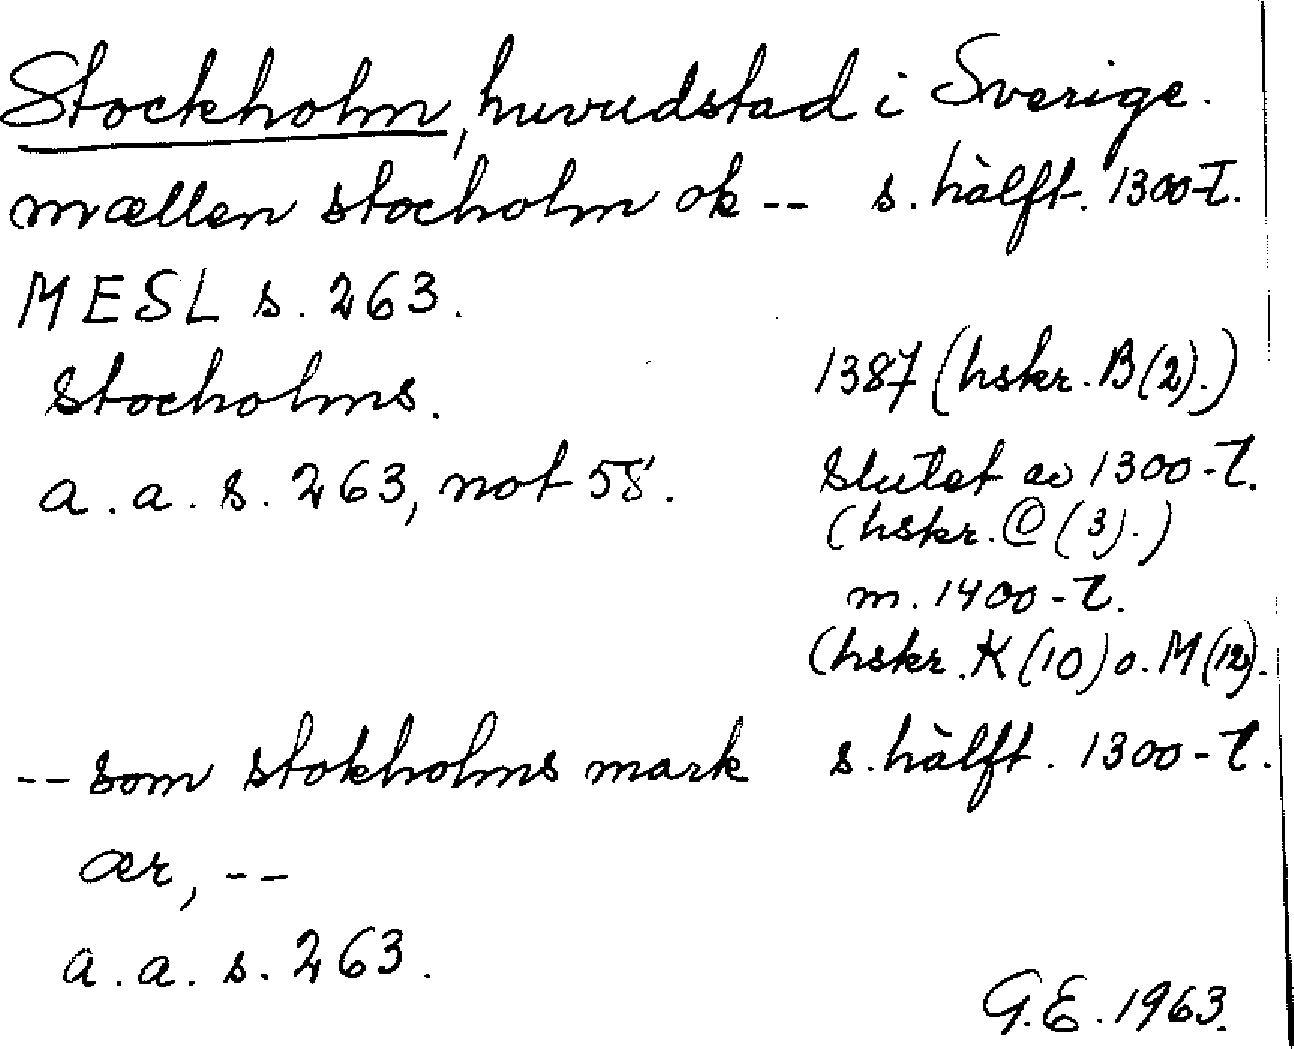 Stockholm, huvudstad i Sverige.
mællen stocholm ok -- s. hälft. 1300-t.
MESL s. 263.
Stocholms. 1387 (hskr. B (2).)
a. a. s. 263, not 58. Slutet av 1300-t.
(hskr. C (3).)
m. 1400-t.
(hskr. K (10) o. M (12).
-- som stokholms mark s. hälft. 1300-t.
ær, --
a. a. s. 263.
G.E. 1963.